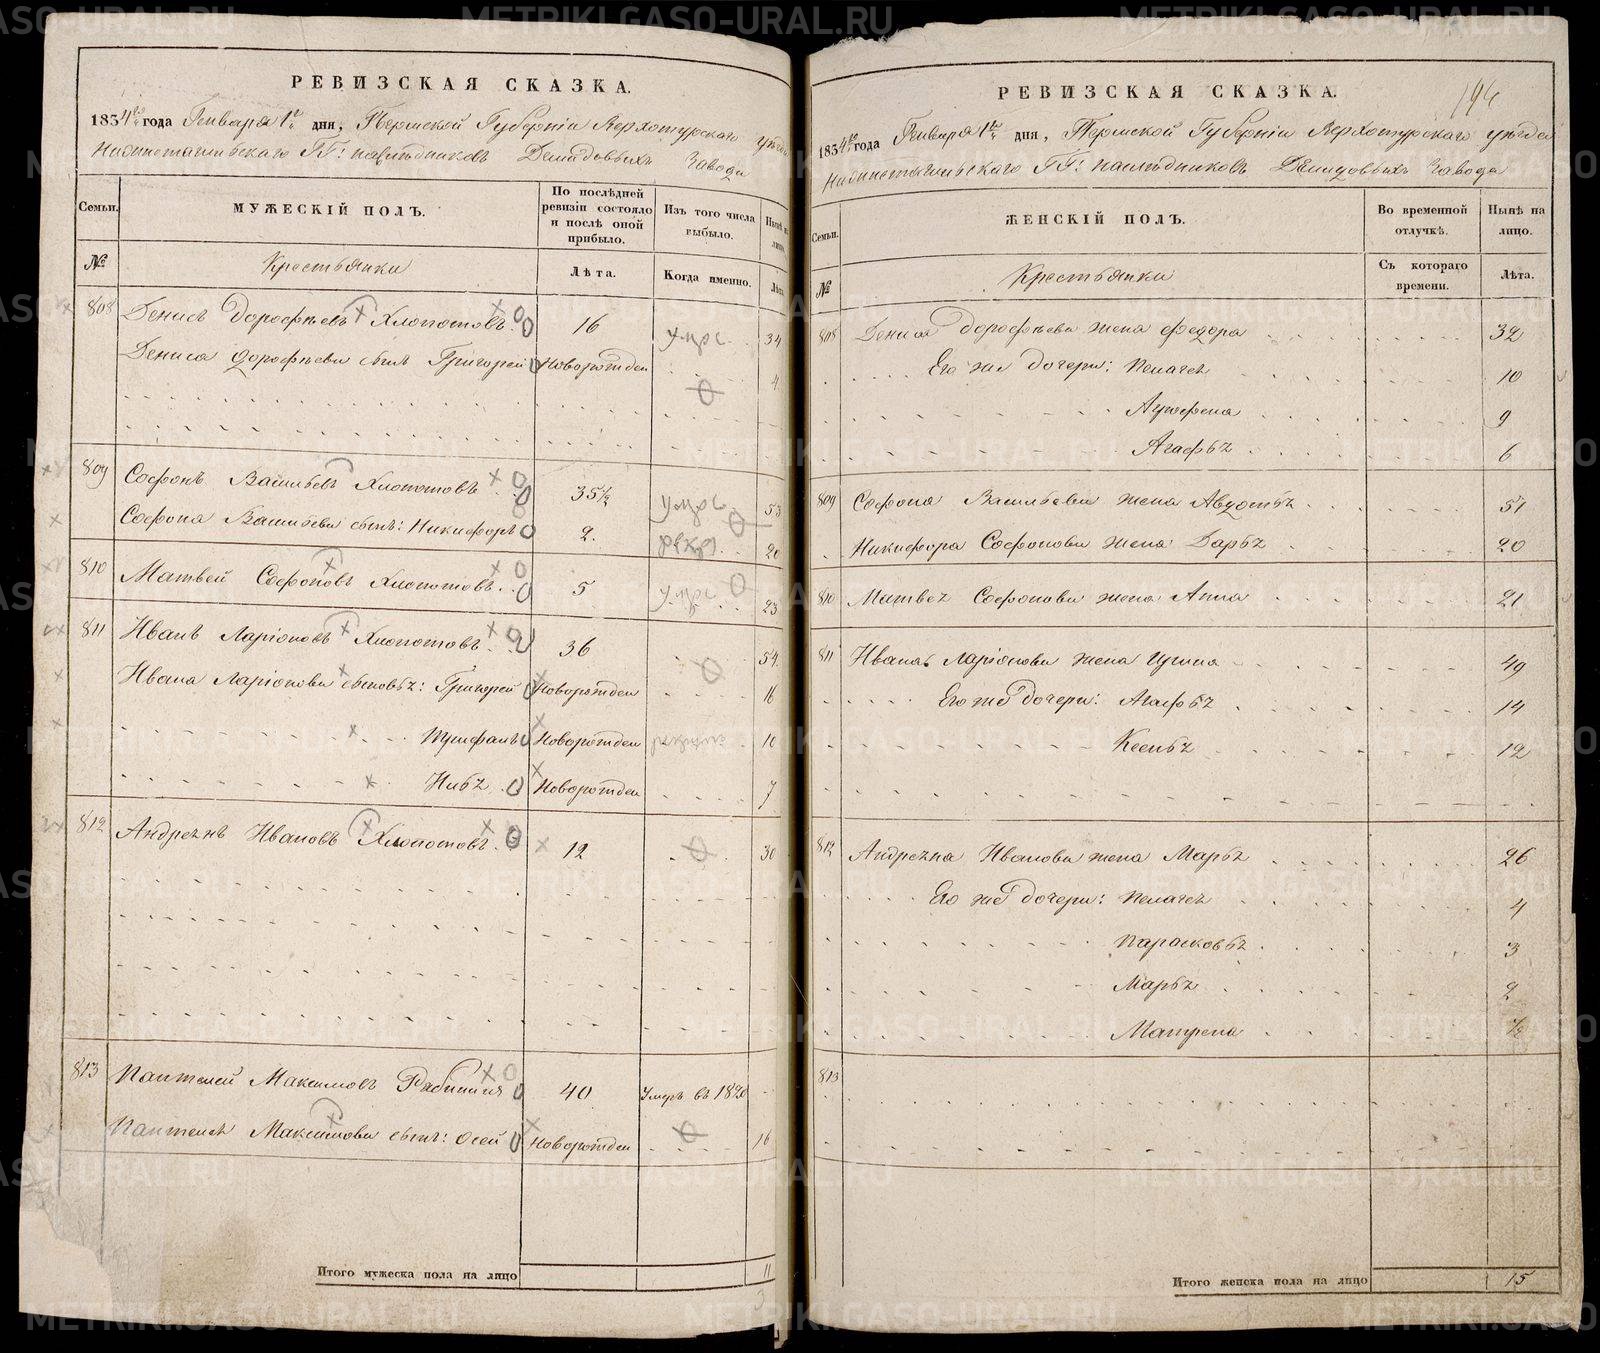 РЕВИЗСКАЯ СКАЗКА.
1834го года Генваря 1го дня, Пермской Губерніи Верхотурскаго уѣзда
Нижнетагильскаго ГГ: наслѣдниковъ Демидовыхъ Завода
Семьи. МУЖЕСКІЙ ПОЛЪ. По послѣдней ревизіи состояло и послѣ оной прибыло. Изъ того числа выбыло. Нынѣ на лицо.
№ Крестьянки Лѣта. Когда именно. Лѣта
808 Денисъ Дорофѣевъ Хлопотовъ. 16 умре 34
Дениса Дорофѣева сынъ Григорей Новорожден 4
809 Софонъ Васильевъ Хлопотовъ 35½ умре 53
Софона Васильева сынъ: Никифоръ 2. рекр. 20
810 Матвей Софоновъ Хлопотовъ. 5 умре 23
811 Иванъ Ларіоновъ Хлопотовъ 36 54.
Ивана Ларіонова сыновья: Григорей Новорожден 16
Трифанъ Новорожден 10
Илья Новорожден 7
812 Андреянъ Ивановъ Хлопотовъ. 12 30
813 Пантелей Максимовъ 40 Умеръ въ 1820
Пантелея Максимова сынъ: Осей Новорожден 16
Итого мужеска пола на лицо 11
РЕВИЗСКАЯ СКАЗКА. 194
1834го года Генваря 1го дня, Пермской Губерніи Верхотурскаго уѣзда
Нижнетагильскаго ГГ: наслѣдниковъ Демидовыхъ Завода
Семьи. ЖЕНСКІЙ ПОЛЪ. Во временной отлучкѣ. Нынѣ на лицо.
№ Крестьянки Съ котораго времени. Лѣта.
808 Дениса Дорофѣева жена Федора 32
Его же дочери: Пелагея 10
Агрофена 9
Агафья 6
809 Софона Васильева жена Авдотья 51
Никифора Софонова жена Дарья 20
810 Матвея Софонова жена Анна 21
811 Ивана Ларіонова жена Ирина 49
Его же дочери: Агафья 14
Ксенья 12
812 Андреяна Иванова жена Марья 26
Его же дочери: Пелагея 4
Парасковья 3
Марья 2
Матрена ½
813
Итого женска пола на лицо 15
METRIKI.GASO-URAL.RU